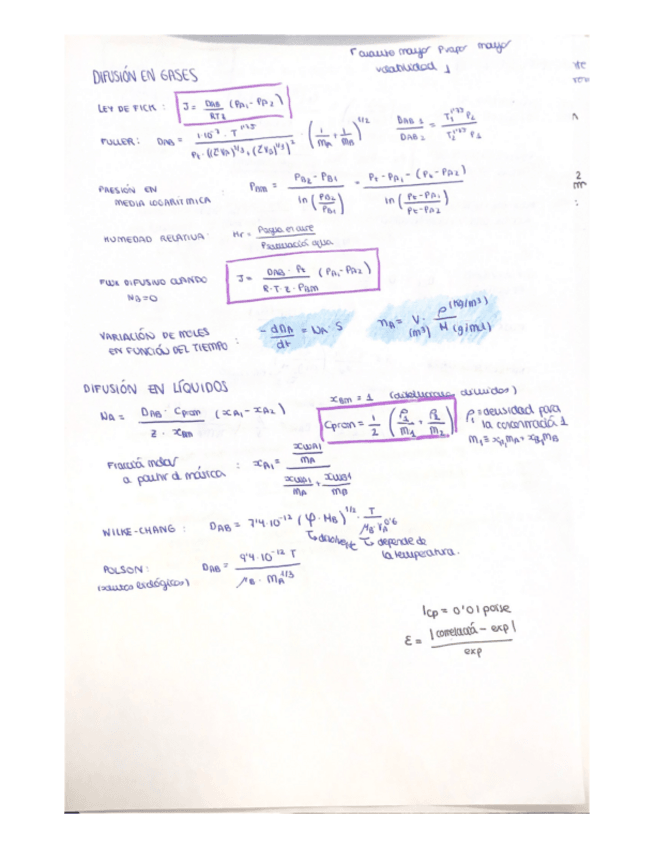 ↑ cuanto mayor Pvapor mayor
volatilidad ↓
DIFUSIÓN EN GASES
LEY DE FICK : J = DAB / RTz (PA1 - PA2)
FULLER : DAB = 1·10⁻³ · T^1'75 / Pt · ((ΣVA)^1/3 + (ΣVB)^1/3)² · (1/MA + 1/MB)^1/2 DAB1 / DAB2 = T1^1'75 P2 / T2^1'75 P1
PRESIÓN EN
MEDIA LOGARITMICA : PBM = PB2 - PB1 / ln (PB2/PB1) = Pt - PA1 - (Pt - PA2) / ln (Pt - PA1 / Pt - PA2)
HUMEDAD RELATIVA : Hr = Pagua en aire / Psaturación agua
FLUX DIFUSIVO CUANDO
NB=0 J = DAB · Pt / R·T·z·PBM (PA1 - PA2)
VARIACIÓN DE MOLES
EN FUNCIÓN DEL TIEMPO : -dnA / dt = NA · S nA = V (m³) · ρ (kg/m³) / M (g/mol)
DIFUSIÓN EN LÍQUIDOS
xBM = 1 (disoluciones diluidas)
NA = DAB · Cprom / z · xBM (xA1 - xA2) Cprom = 1/2 (ρ1/m1 + ρ2/m2) ρ1 = densidad para
la concentración 1
m1 = xA1 MA + xB1 MB
Fracció molar
a partir d màssica : xA1 = xWA1/MA / xWA1/MA + xWB1/MB
WILKE-CHANG : DAB = 7'4·10⁻¹² (φ·MB)^1/2 · T / μB · VA^0'6
↳ disolvent ↳ depende de
la temperatura.
POLSON :
(solutos biológicos) DAB = 9'4·10⁻¹² T / μB · MA^1/3
1cp = 0'01 poise
ε = |correlació - exp| / exp